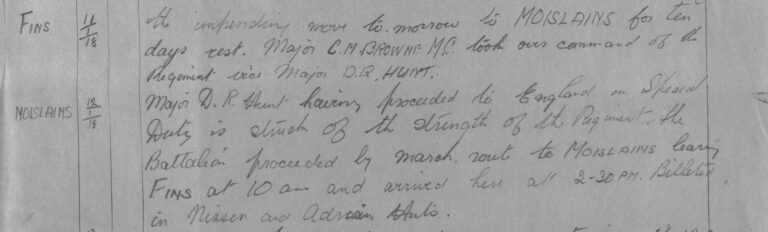 FINS 11/1/18 the impending move to-morrow to MOISLAINS for ten
days rest. Major C.M. BROWNE M.C. took over command of the
Regiment vice Major D.R. HUNT.
MOISLAINS 12/1/18 Major D. R. Hunt having proceeded to England on Special
Duty is struck of the strength of the Regiment. The
Battalion proceeded by march rout to MOISLAINS leaving
FINS at 10 am and arrived here at 2-30 PM. Billeted
in Nissen and Adrian Huts.